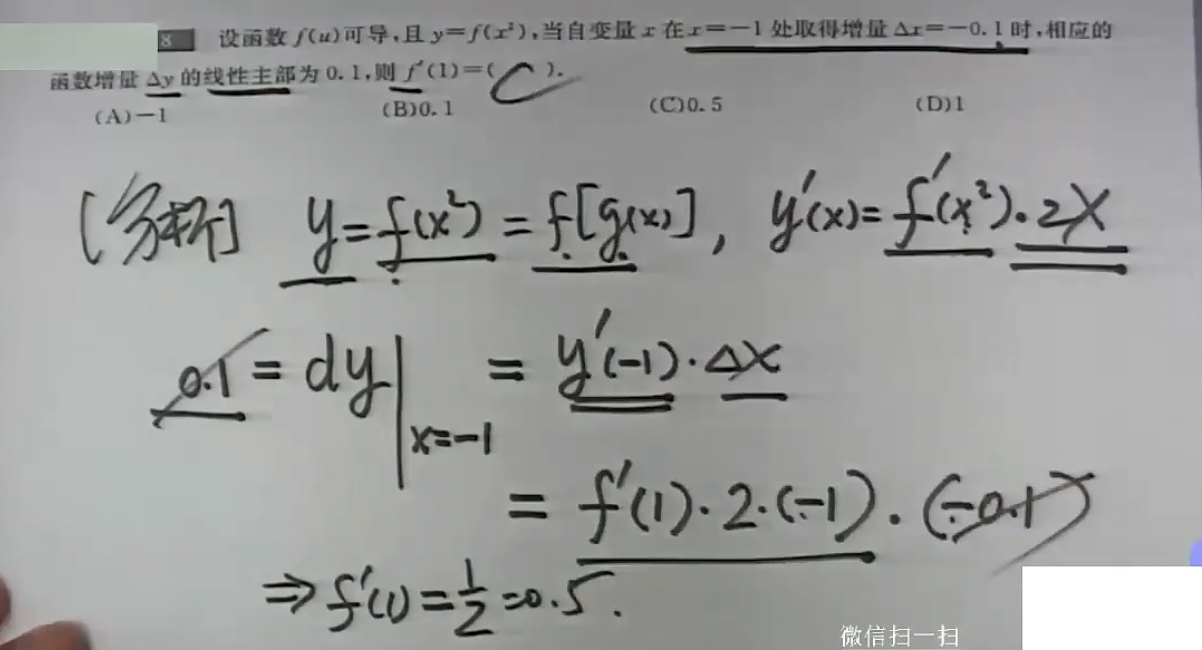 8 设函数 f(u)可导,且 y=f(x²),当自变量 x 在 x=-1 处取得增量 Δx=-0.1 时,相应的
函数增量 Δy 的线性主部为 0.1,则 f′(1)=( C ).
(A)-1 (B)0.1 (C)0.5 (D)1
[分析] y=f(x²)=f[g(x)], y′(x)=f′(x²)·2x
0.1=dy|x=-1 =y′(-1)·Δx
=f′(1)·2·(-1)·(-0.1)
⇒f′(1)=1/2=0.5.
微信扫一扫